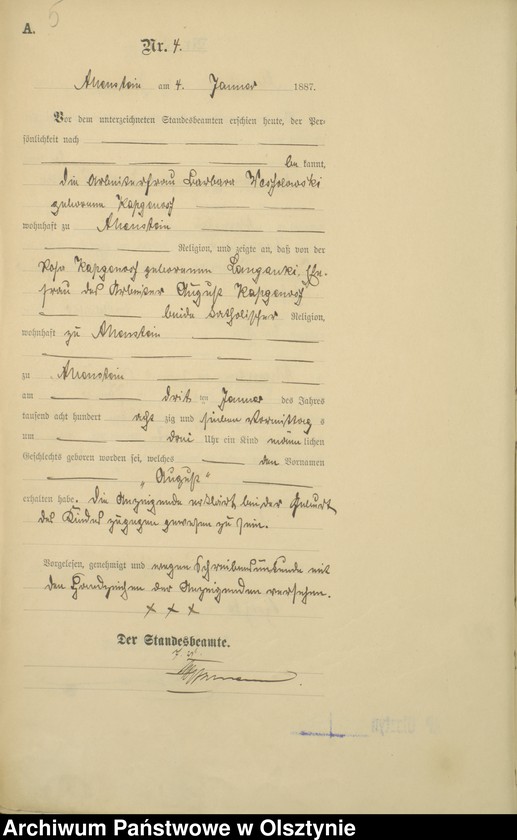 A. 5
Nr. 4.
Allenstein am 4. Januar 1887.
Vor dem unterzeichneten Standesbeamten erschien heute, der Per=
sönlichkeit nach
bekannt,
die Arbeiterfrau Barbara
geborene Kapgenorf
wohnhaft zu Allenstein
Religion, und zeigte an, daß von der
Rosa Kapgenorf geborenen Langanki, Ehe-
frau des Arbeiter August Kapgenorf
beide katholischer Religion,
wohnhaft zu Allenstein
zu Allenstein
am dritten Januar des Jahres
tausend acht hundert achtzig und sieben Vormittags
um drei Uhr ein Kind männlichen
Geschlechts geboren worden sei, welches den Vornamen
„August“
erhalten habe. Die Anzeigende erklärt bei der Geburt
des Kindes zugegen gewesen zu sein.
Vorgelesen, genehmigt und wegen Schreibensunkunde mit
den Handzeichen der Anzeigenden versehen.
+ + +
Der Standesbeamte.
Archiwum Państwowe w Olsztynie